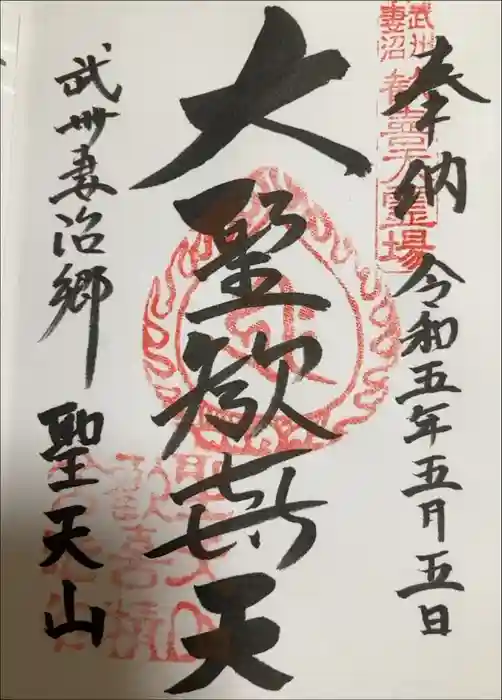 奉納 令和五年五月五日
武州妻沼
歓喜天霊場
大聖歓喜天
武州妻沼郷 聖天山